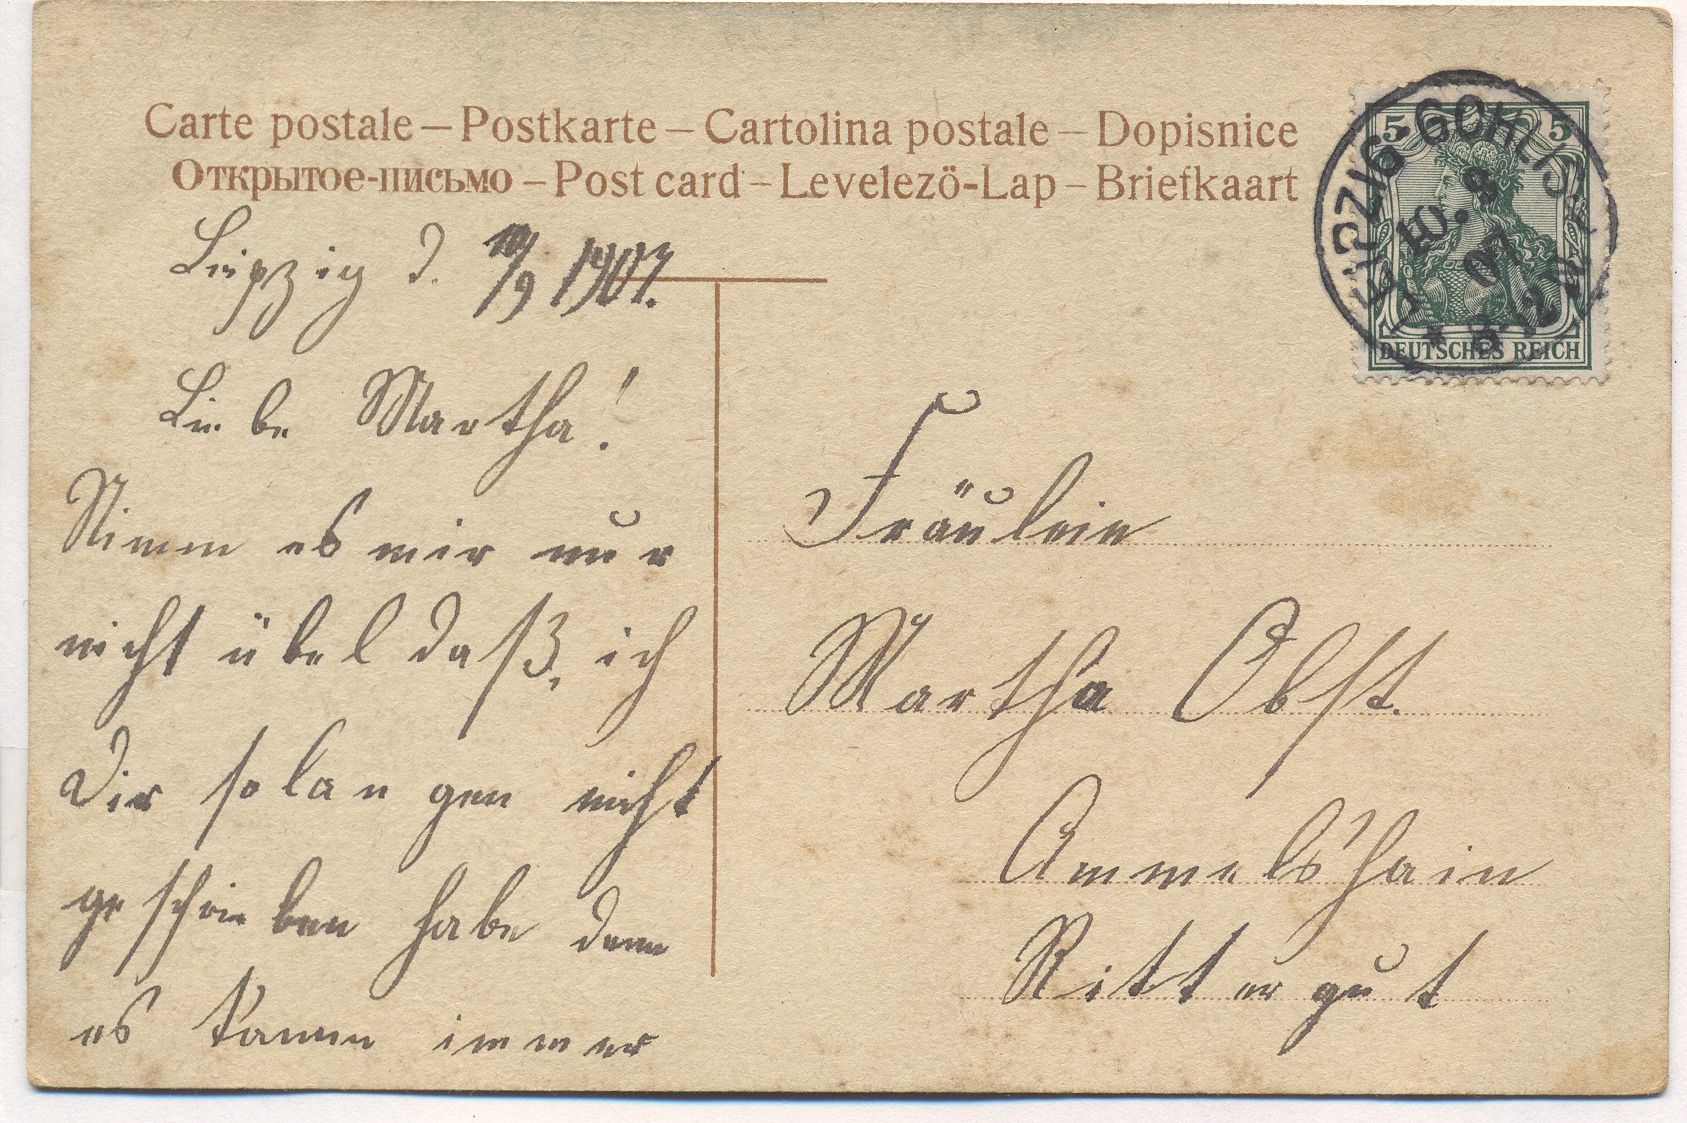 Carte postale – Postkarte – Cartolina postale – Dopisnice
Открытое-письмо – Post card – Levelező-Lap – Briefkaart
Leipzig d. 10/9 1907.
Liebe Martha!
Nimm es mir nur
nicht übel daß, ich
Dir solangen nicht
geschrieben habe denn
es kamm immer
LEIPZIG-GOHLIS
10. 9
07
8-12 N
5 5
DEUTSCHES REICH
Fräulein
Martha Obst.
Ammelshain
Rittergut